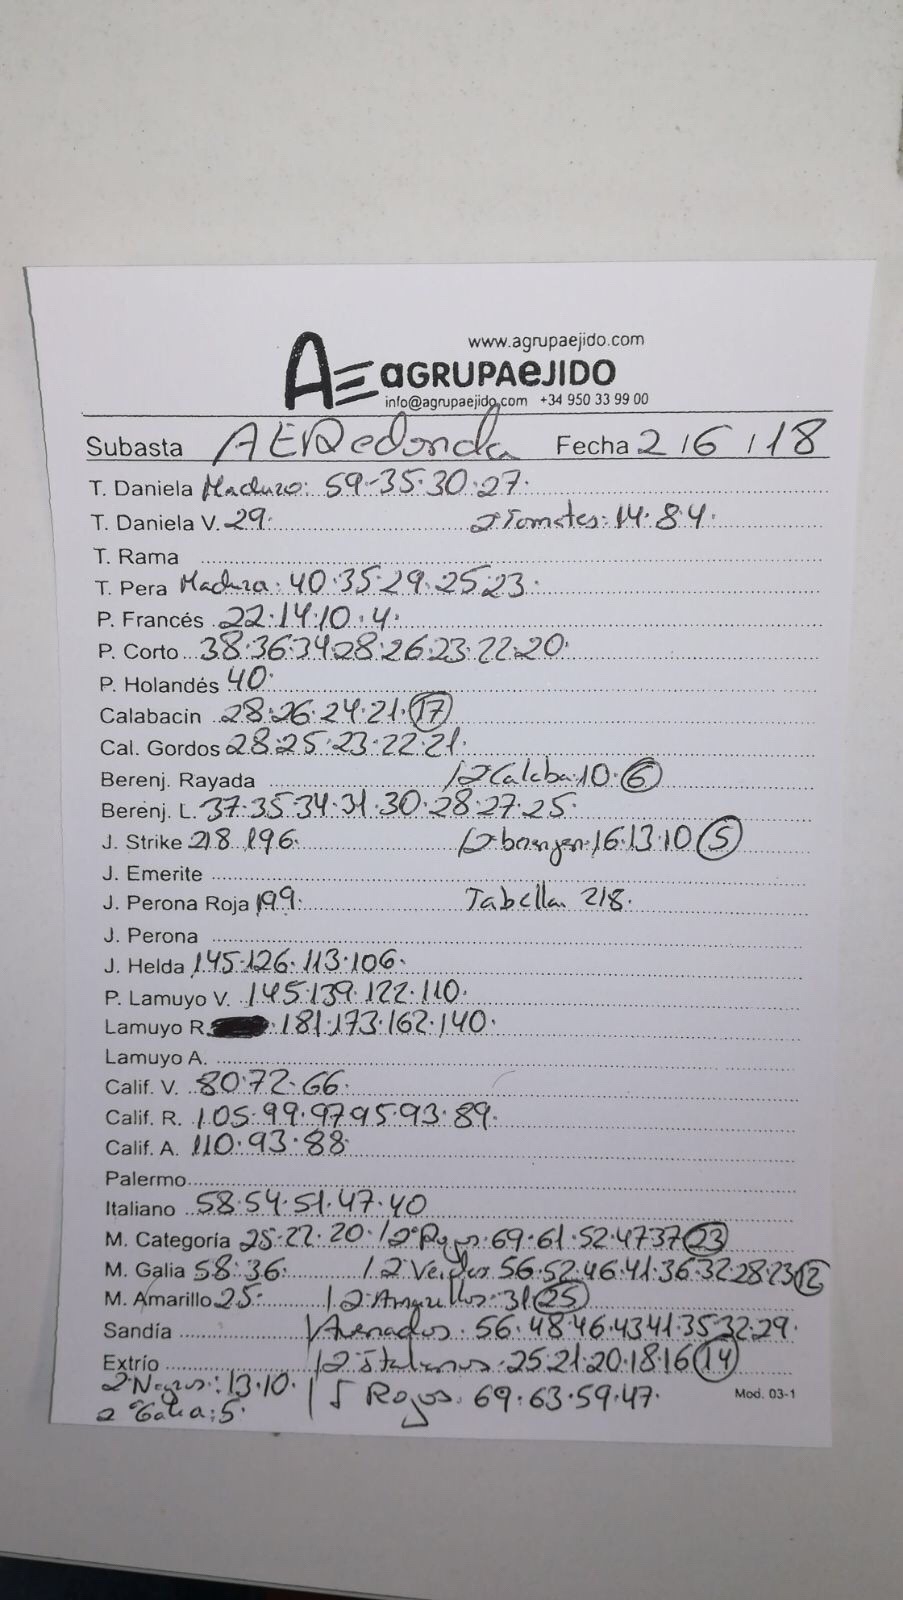 www.agrupaejido.com
AE aGRUPAeJIDO
info@agrupaejido.com +34 950 33 99 00
Subasta AERedonda Fecha 2/6/18
T. Daniela Maduro: 59-35-30-27.
T. Daniela V. 29. 2ªTomates: 14.8.4.
T. Rama
T. Pera Madura: 40.35.29.25.23.
P. Francés 22.14.10.4.
P. Corto 38.36.34.28.26.23.22.20.
P. Holandés 40.
Calabacin 28.26.24.21.17
Cal. Gordos 28.25.23.22.21.
Berenj. Rayada /2ªCalaba.10.6
Berenj. L. 37.35.34.31.30.28.27.25.
J. Strike 218.196. /2ªberenjen.16.13.10.5
J. Emerite
J. Perona Roja 199. Tabella 218.
J. Perona
J. Helda 145.126.113.106.
P. Lamuyo V. 145.139.122.110.
Lamuyo R. 181.173.162.140.
Lamuyo A.
Calif. V. 80.72.66.
Calif. R. 105.99.97.95.93.89.
Calif. A. 110.93.88
Palermo
Italiano 58.54.51.47.40
M. Categoría 25.22.20. / 2ªRojos: 69.61.52.47.37.23
M. Galia 58.36. / 2ªVerdes 56.52.46.41.36.32.28.23.12
M. Amarillo 25. / 2ªAmarillos: 31.25
Sandía / Asurcados: 56.48.46.43.41.35.32.29.
Extrío / 2ªItalianos: 25.21.20.18.16.14
2ªNegros: 13.10. / 5 Rojos: 69.63.59.47. Mod. 03-1
2ªGalia: 5.